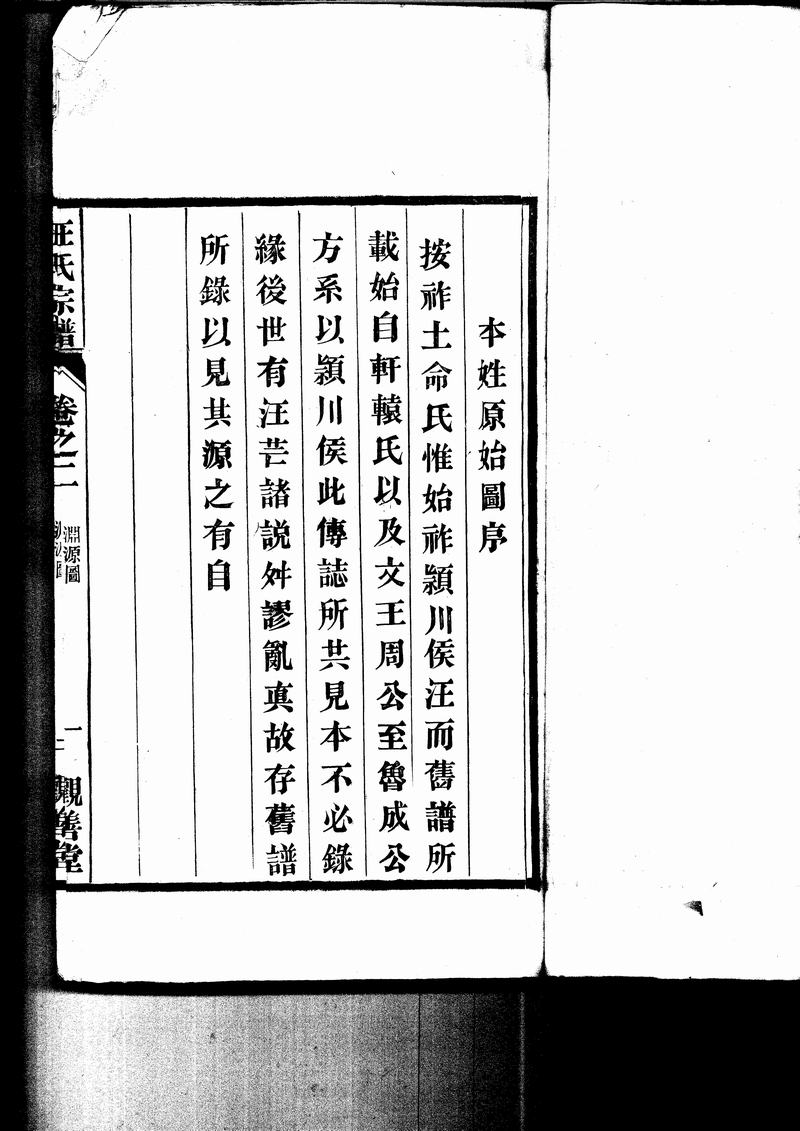 本姓原始圖序
按祚土命氏惟始祚潁川侯汪而舊譜所
載始自軒轅氏以及文王周公至魯成公
方系以潁川侯此傳誌所共見本不必錄
緣後世有汪芒諸説舛謬亂真故存舊譜
所錄以見其源之有自
汪氏宗譜
卷之二
淵源圖
一
觀善堂